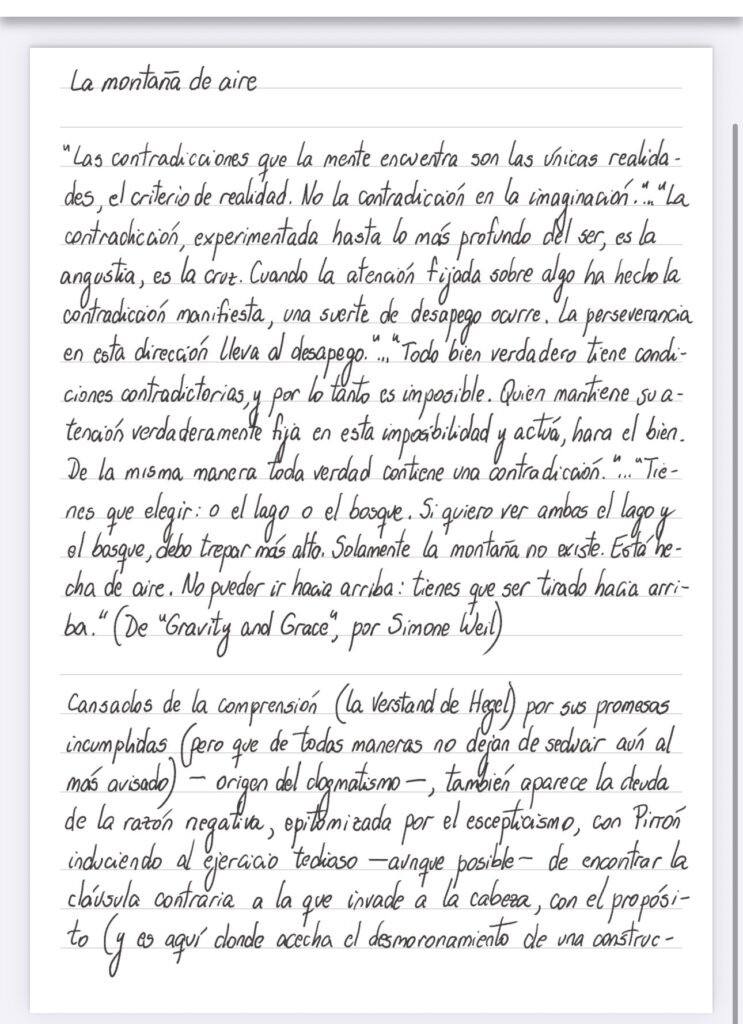 La montaña de aire
"Las contradicciones que la mente encuentra son las únicas realida-
des, el criterio de realidad. No la contradicción en la imaginación."..."La
contradicción, experimentada hasta lo más profundo del ser, es la
angustia, es la cruz. Cuando la atención fijada sobre algo ha hecho la
contradicción manifiesta, una suerte de desapego ocurre. La perseverancia
en esta dirección lleva al desapego."..."Todo bien verdadero tiene condi-
ciones contradictorias, y por lo tanto es imposible. Quien mantiene su a-
tención verdaderamente fija en esta imposibilidad y actúa, hara el bien.
De la misma manera toda verdad contiene una contradicción."..."Tie-
nes que elegir: o el lago o el bosque. Si quiero ver ambas el lago y
el bosque, debo trepar más alto. Solamente la montaña no existe. Está he-
cha de aire. No puedes ir hacia arriba: tienes que ser tirado hacia arri-
ba." (De "Gravity and Grace", por Simone Weil)
Cansados de la comprensión (la Verstand de Hegel) por sus promesas
incumplidas (pero que de todas maneras no dejan de seducir aún al
más avisado) — origen del dogmatismo —, también aparece la deuda
de la razón negativa, epitomizada por el escepticismo, con Pirrón
induciendo al ejercicio tedioso — aunque posible — de encontrar la
cláusula contraria a la que invade a la cabeza, con el propósi-
to (y es aquí donde acecha el desmoronamiento de una construc-